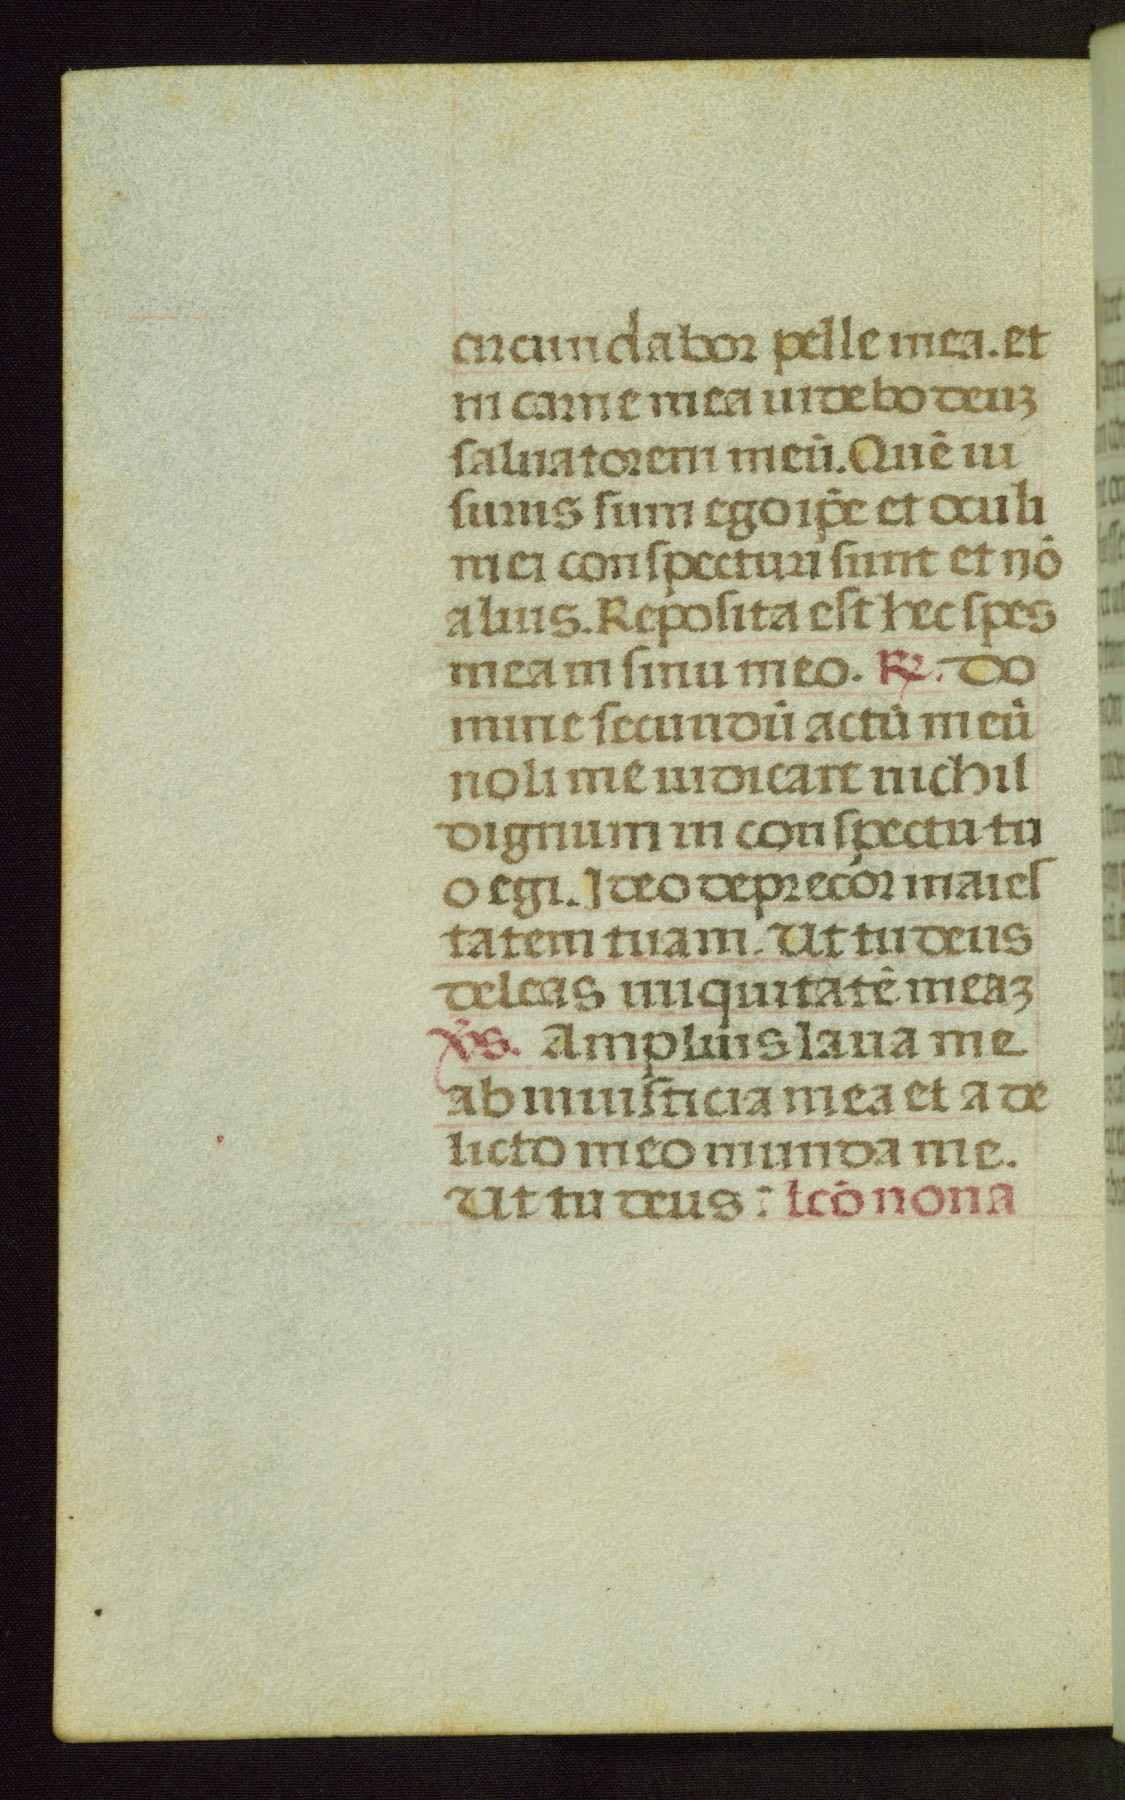 circundabor pelle mea. et
in carne mea uidebo deuꝫ
saluatorem meū. Quē ui
surus sum ego ip̄e et oculi
mei conspecturi sunt et nō
alius. Reposita est hec spes
mea in sinu meo. R℣. Do
mine secundū actū meū
noli me iudicare nichil
dignum in conspectu tu
o egi. Ideo deprecor maies
tatem tuam. Ut tu deus
deleas iniquitatē meaꝫ
v̄s. Amplius laua me
ab iniusticia mea et a de
licto meo munda me.
Ut tu deus : lcō nona